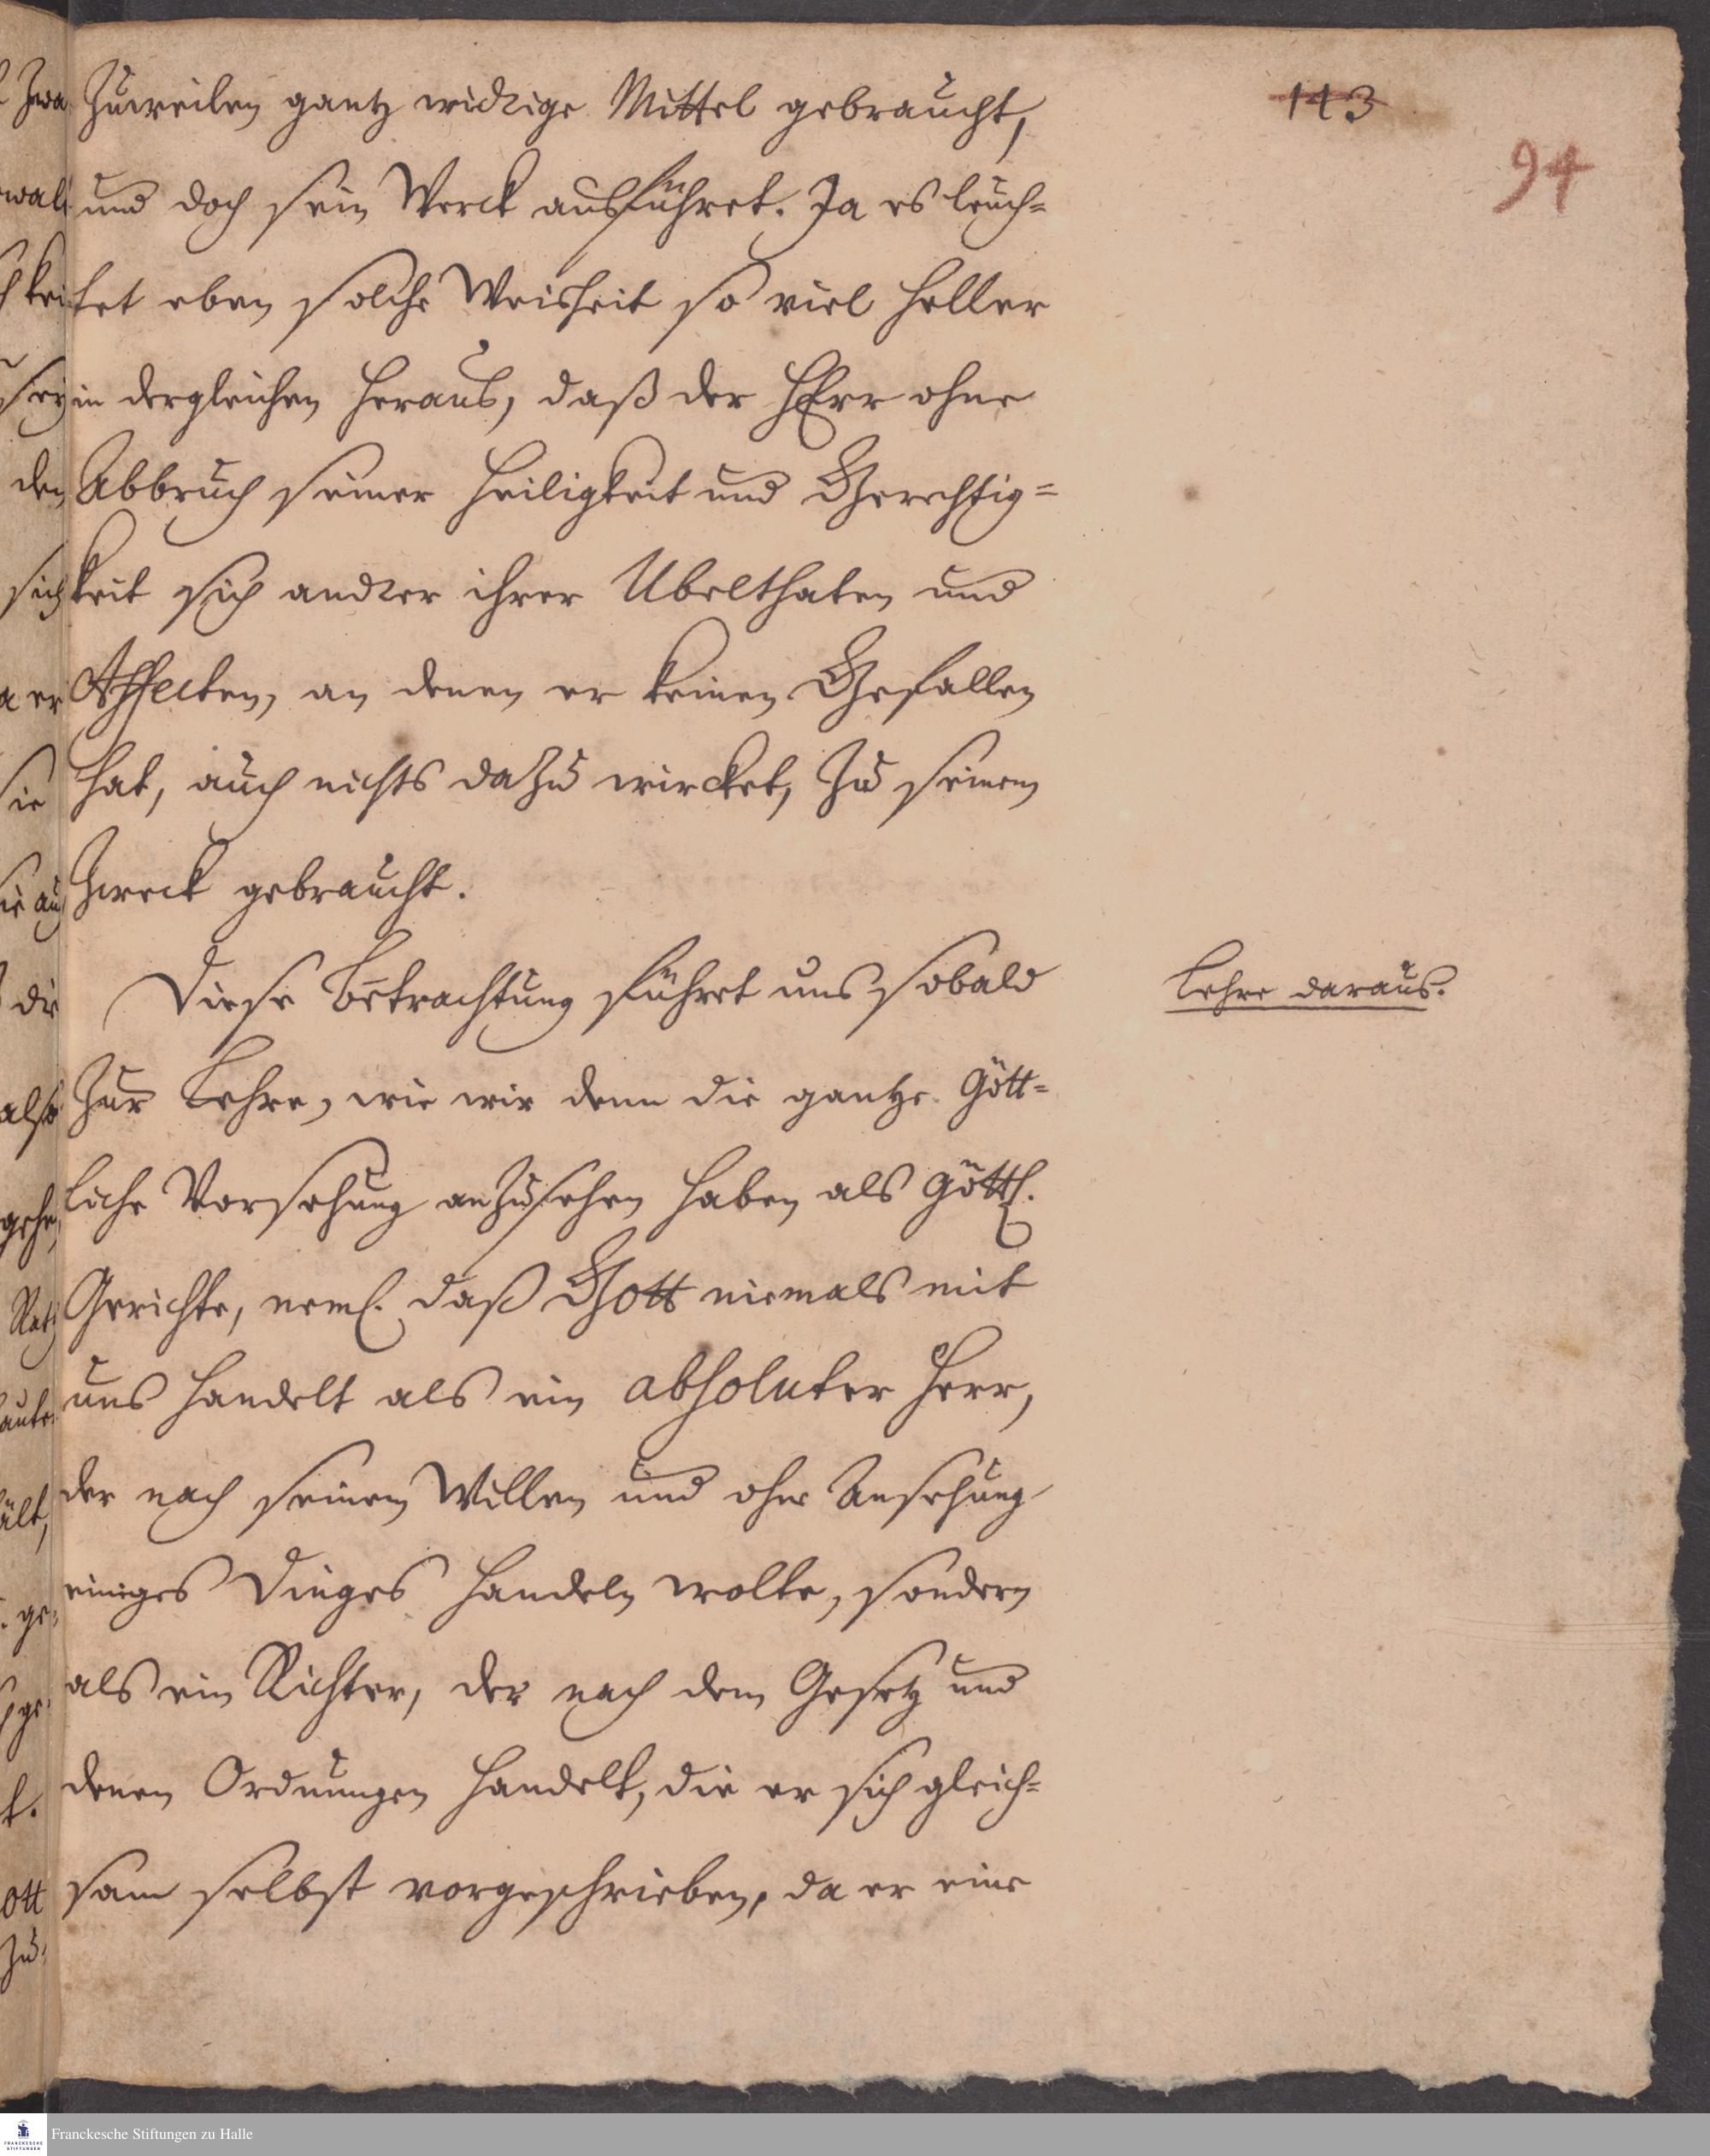 143
94
Zuweilen gantz widrige Mittel gebraucht,
und doch sein Werck ausführet. Ja es leuch=
tet eben solche Weisheit so viel heller
in dergleichen heraus, daß der HErr ohne
Abbruch seiner Heiligkeit und Gerechtig=
keit sich andrer ihrer Ubelthaten und
Affecten, an denen er keinen Gefallen
hat, auch nichts dazu wircket, zu seinem
Zweck gebraucht.
Diese Betrachtung führet uns sobald
Lehre daraus.
zur Lehre, wie wir denn die gantze Gött=
liche Vorsehung anzusehen haben als Göttl.
Gerichte, neml. daß Gott niemals mit
uns handelt als ein absoluter Herr,
der nach seinem Willen und ohne Ansehung
einiges Dinges handeln wolte, sondern
als ein Richter, der nach dem Gesetz und
denen Ordnungen handelt, die er sich gleich=
sam selbst vorgeschrieben, da er eine
Franckesche Stiftungen zu Halle